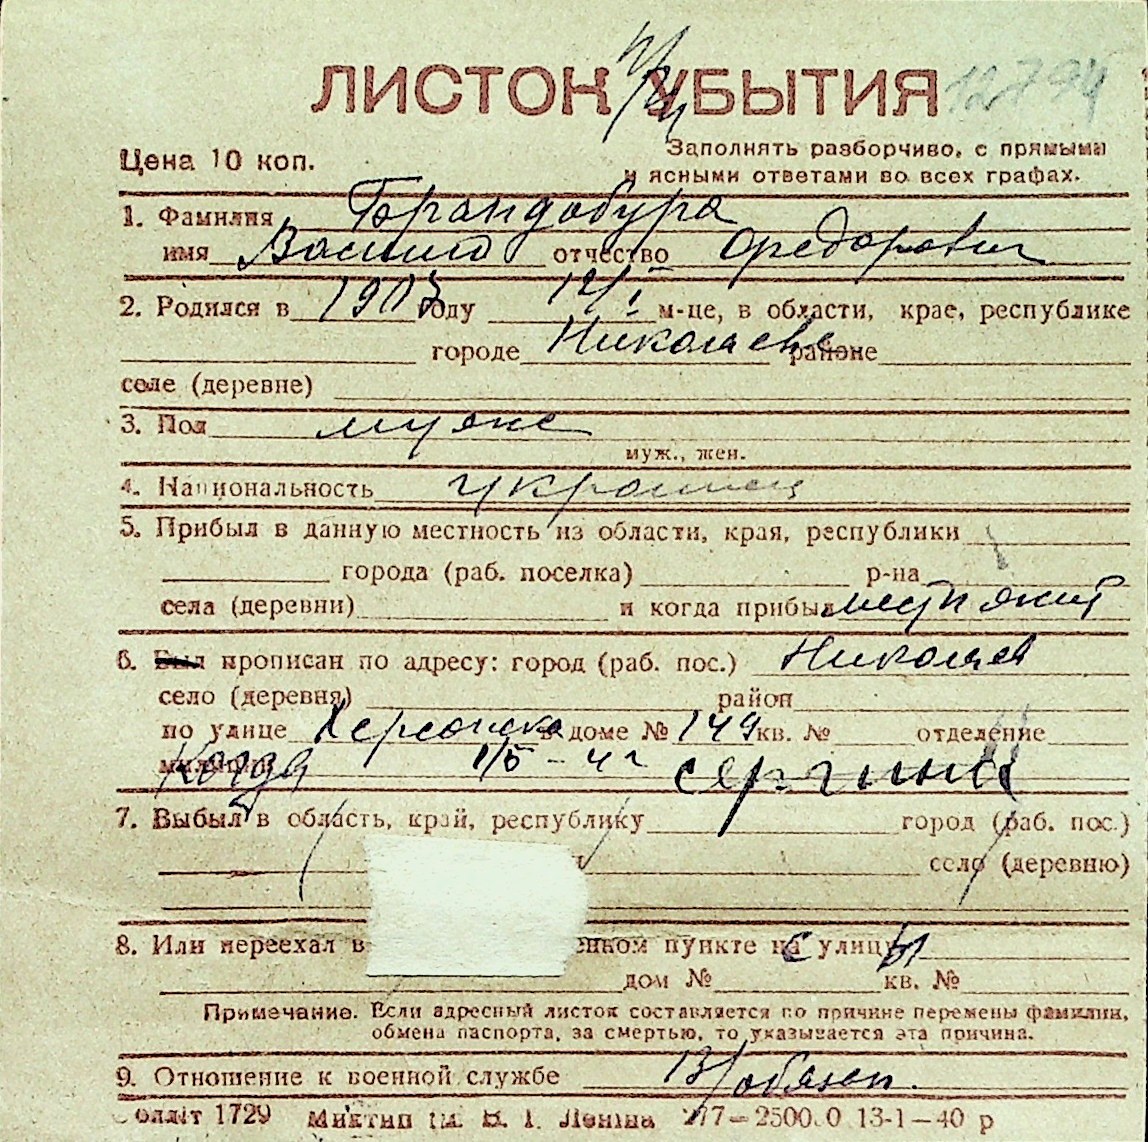 ЛИСТОК УБЫТИЯ 12794
Цена 10 коп.
Заполнять разборчиво, с прямыми
и ясными ответами во всех графах.
1. Фамилия Брандобура
имя Василий отчество Федорович
2. Родился в 1907 году 12/I м-це, в области, крае, республике
городе Николаеве районе
селе (деревне)
3. Пол мужс
муж., жен.
4. Национальность украинец
5. Прибыл в данную местность из области, края, республики
города (раб. поселка) р-на
села (деревни) и когда прибыл мест. жит
6. Был прописан по адресу: город (раб. пос.) Николаев
село (деревня) район
по улице Херсонска в доме № 149 кв. № отделение
милиции Когда 1/5-41
7. Выбыл в область, край, республику город (раб. пос.)
село (деревню)
8. Или переехал в енном пункте на с улицы ы
дом № кв. №
Примечание. Если адресный листок составляется по причине перемены фамилии,
обмена паспорта, за смертью, то указывается эта причина.
9. Отношение к военной службе В/обязан.
1729 Ленина 277—2500.0 13-1—40 р